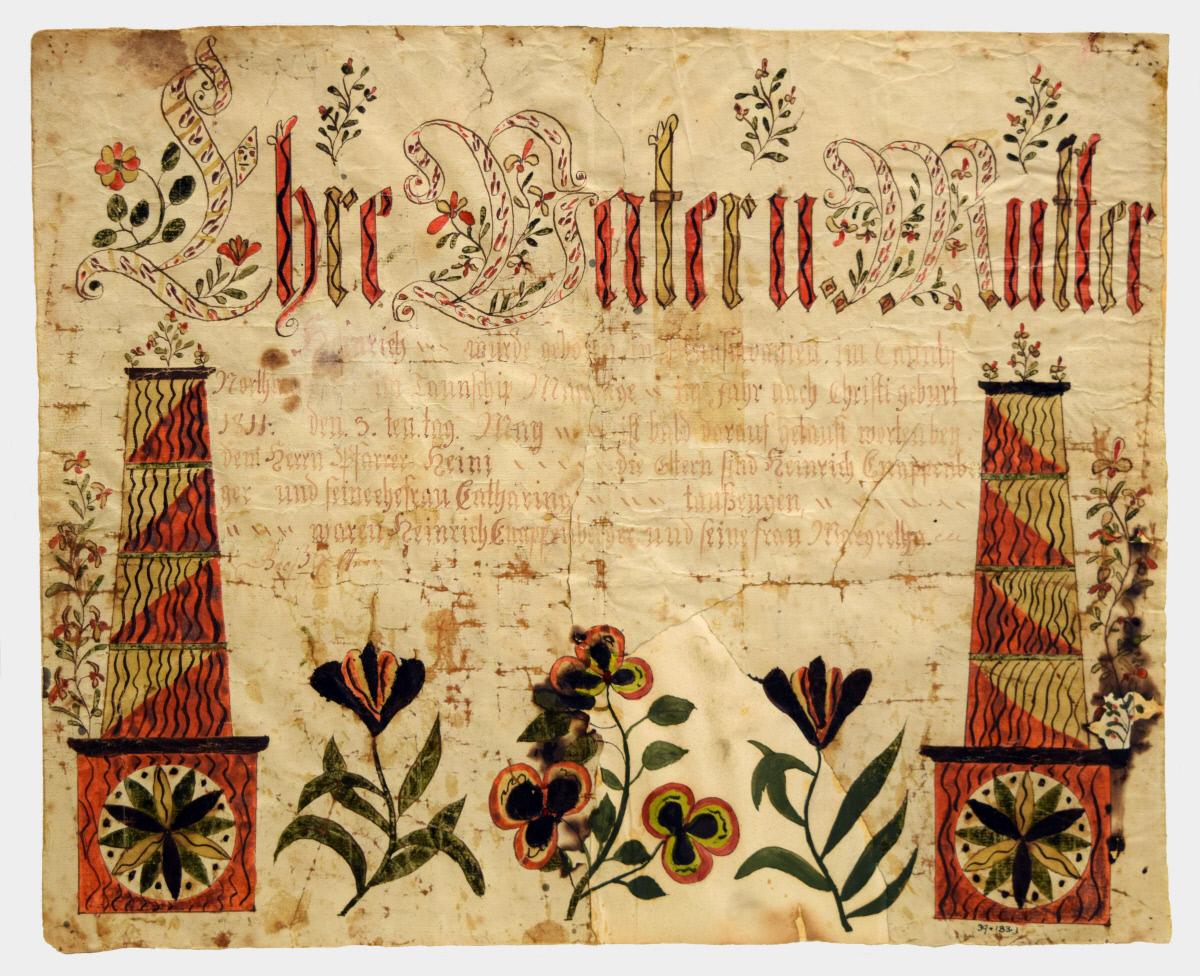 Ehre Vater u. Mutter
Heinrich wurde geboren in Pensilvanien, im Caunty
im Taunschip im Jahr nach Christi geburt
1811. den. 3. ten. tag. May ist bald darauf getauft worten ben
dem Herrn Pfarrer Heini die Eltern sind Heinrich Cnappenber
ger und seine ehefrau Catharina taufzeugen,
waren Heinrich Cnappenberger und seine frau Margretha
39•183•1